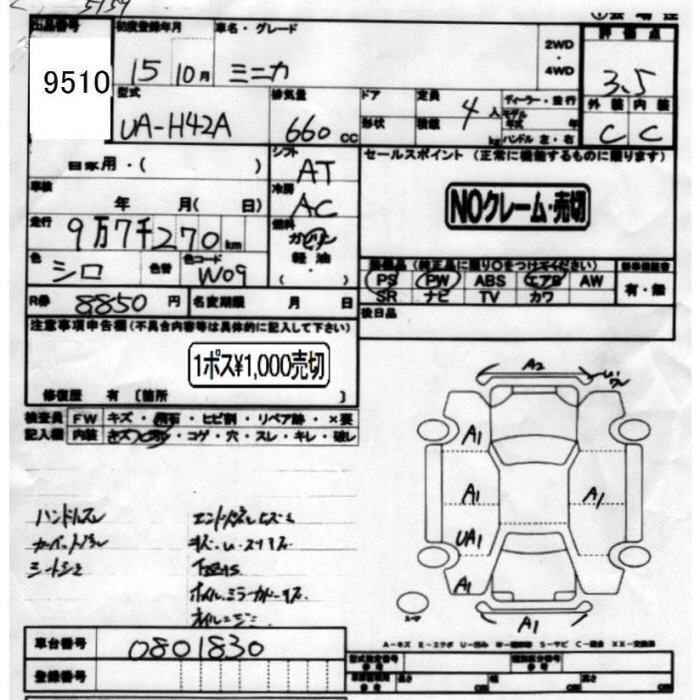 5159
出品番号 初度登録年月 車名・グレード 2WD・4WD 評価点
9510 15 10月 ミニカ 3.5
型式 排気量 ドア 定員 ディーラー・並行 外装 内装
UA-H42A 660cc 形状 積載 4人 kg モデル年式 年 ハンドル 左・右 C C
自家用・( ) シフト AT セールスポイント (正常に機能するものに限ります)
車検 年 月( 日) 冷房 AC NOクレーム・売切
走行 9万7千270km 燃料 ガソリン・軽油・( )
色 シロ 色替 色コード W09 装備品 (純正品に限り○をつけてください) 新車保証書
PS PW ABS エアB AW 有・無
R券 8850円 名変期限 月 日 SR ナビ TV カワ
注意事項申告欄 (不具合内容等は具体的に記入して下さい) 後日品
1ポス¥1,000売切
修復歴 有 [箇所 ]
検査員 FW キズ・飛石・ヒビ割・リペア跡・×要
記入欄 内装 キズ・ヨゴレ・コゲ・穴・スレ・キレ・破レ
A2
A1
A1 A1
UA1
A1
A1
ハンドルスレ
シートシミ
車台番号 0801830
登録番号
A-キズ E-エクボ U-凹み W-補修跡 S-サビ C-腐食 XX-交換済
型式指定番号 参考 類別区分番号 参考
長さ cm 幅 cm 高さ cm